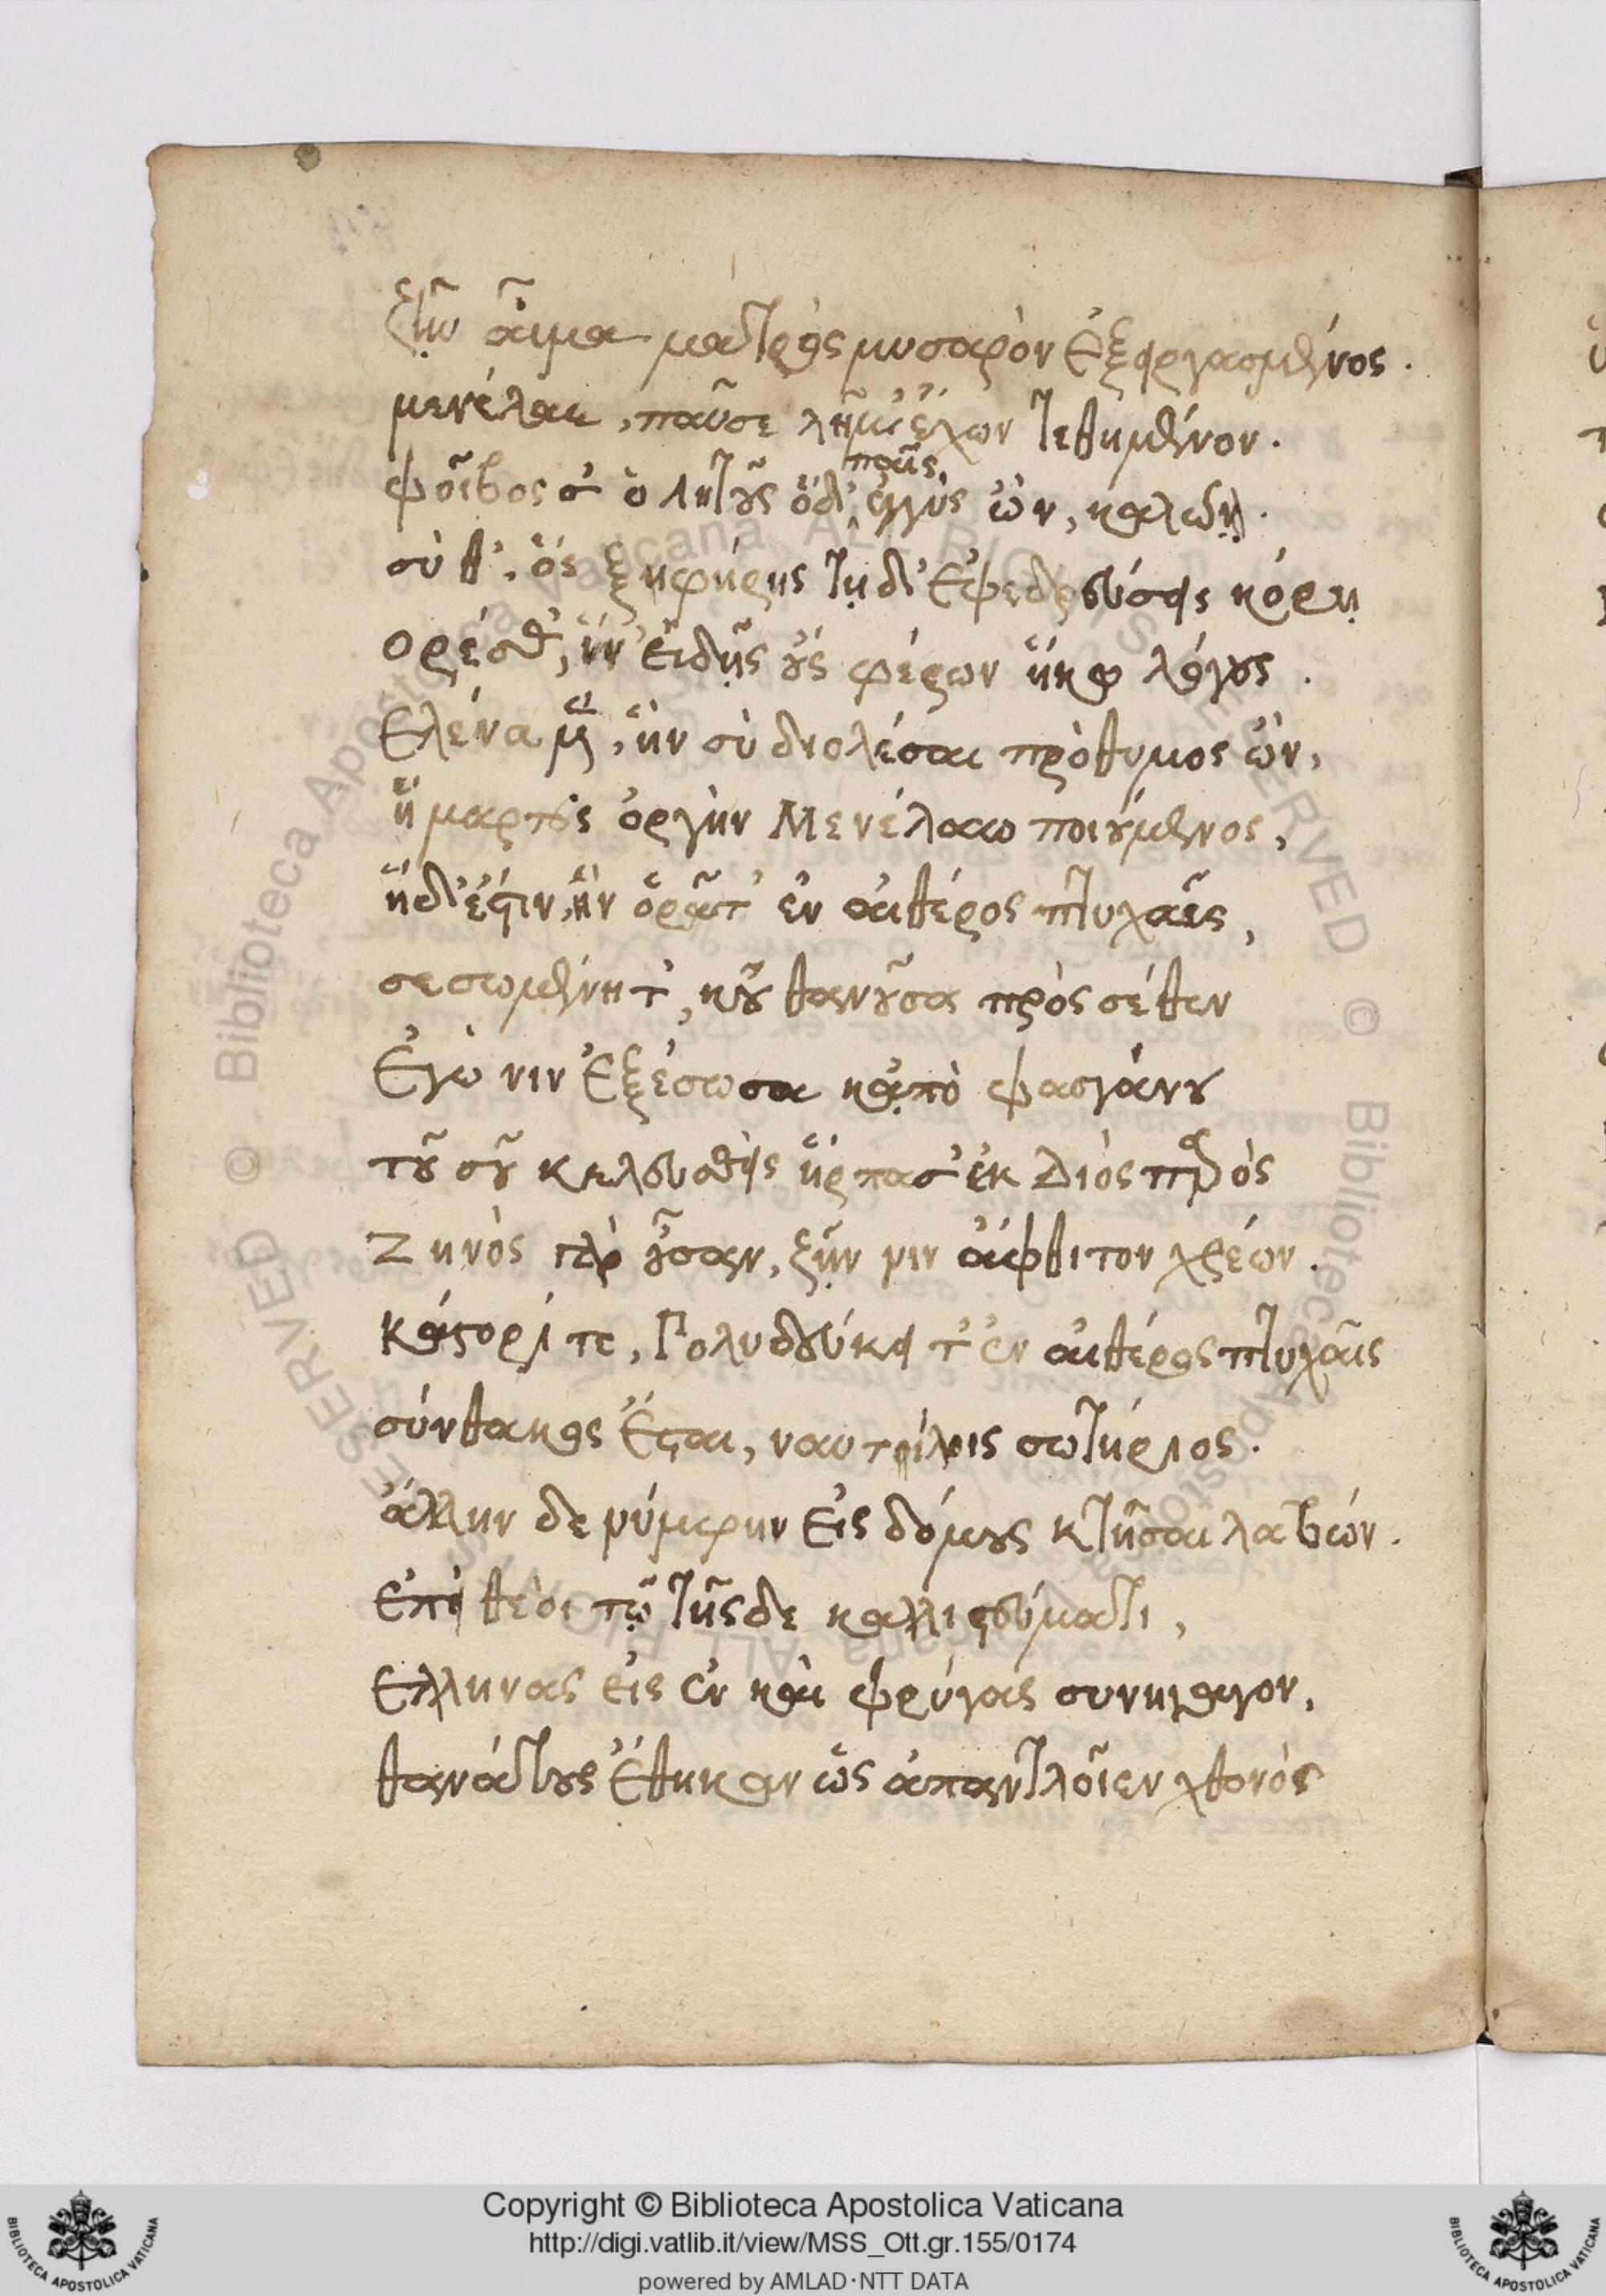 ζῆν αἷμα μητρὸς μυσαρὸν ἐξειργασμένος.
μενέλαε, παῦσε λῆμ' ἔχων τεθημένον.
φοῖβος σ' ὁ λητοῦς ὅδ' ἐγγὺς ὢν, καλῶ.
παῖς
σύ θ', ὃς ξιφήρης τῇδ' ἐφεδρεύσεις κόρῃ
ὀρέσθ', ἵν' εἰδῇς οὓς φέρων ἥκω λόγους.
ἑλένα μὲν, ἣν σὺ διολέσαι πρόθυμος ὢν,
ἥμαρτες ὀργὴν Μενέλαω ποιούμενος,
ἥδ' ἐστιν, ἣν ὁρᾶτ' ἐν αἰθέρος πτυχαῖς,
σεσωμένη τ', κοὐ θανοῦσα πρὸς σέθεν
ἐγώ νιν ἐξέσωσα κἀπὸ φασγάνου
τοῦ σοῦ κελευσθεὶς ἥρπασ' ἐκ Διὸς πατρὸς
Ζηνὸς γὰρ οὖσαν, ζῆν νιν ἄφθιτον χρεών.
κάστορί τε, Πολυδεύκει τ' ἐν αἰθέρος πτυχαῖς
σύνθακος ἔσται, ναυτίλοις σωτήριος.
ἄλλην δε νύμφην εἰς δόμους κτῆσαι λαβών.
ἐπεὶ θεὸι τῷ τῆσδε καλλιστεύματι,
ἕλληνας εἰς ἓν καὶ φρύγας συνήγαγον,
θανάτους ἔθηκαν ὡς ἀπαντλοῖεν χθονὸς
Copyright © Biblioteca Apostolica Vaticana
http://digi.vatlib.it/view/MSS_Ott.gr.155/0174
powered by AMLAD·NTT DATA